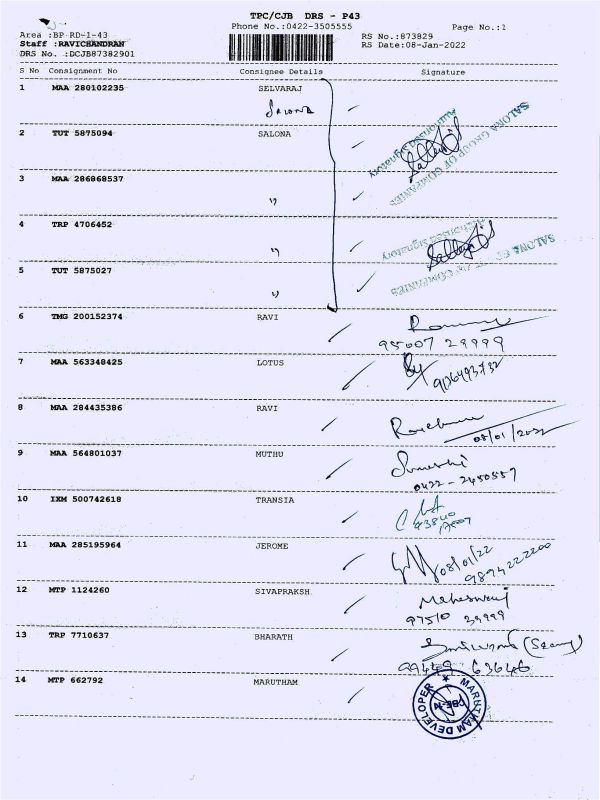 TPC/CJB DRS - P43
Phone No.:0422-3505555
Page No.:1
Area :BP RD-1-43
RS No.:873829
Staff :RAVICHANDRAN
RS Date:08-Jan-2022
DRS No. :DCJB87382901
S No Consignment No Consignee Details Signature
1 MAA 280102235 SELVARAJ
Salona
SALONA GROUP OF COMPANIES
Authorised Signatory
2 TUT 5875094 SALONA
3 MAA 286868537 "
4 TRP 4706452 "
SALONA GROUP OF COMPANIES
Authorised Signatory
5 TUT 5875027 "
6 TMG 200152374 RAVI
95007 29999
7 MAA 563348425 LOTUS
8 MAA 284435386 RAVI
08/01/2022
9 MAA 564801037 MUTHU
0422-2450557
10 IXM 500742618 TRANSIA
11 MAA 285195964 JEROME
08/01/22
9894222200
12 MTP 1124260 SIVAPRAKSH
Maheswari
97510 39999
13 TRP 7710637 BHARATH
99449 63646
14 MTP 662792 MARUTHAM
MARUTHAM DEVELOPER